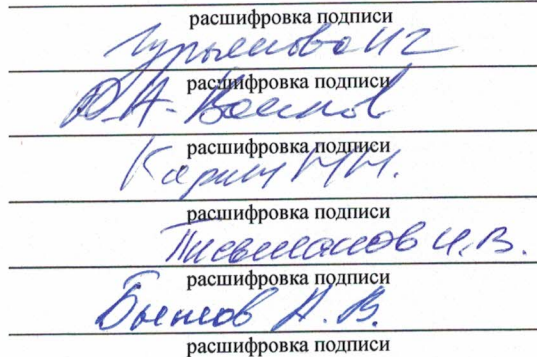 расшифровка подписи
Гурьянова И Г
расшифровка подписи
Ю.А. Воинов
расшифровка подписи
Карин М.Н.
расшифровка подписи
Письманов И.В.
расшифровка подписи
А. В.
расшифровка подписи